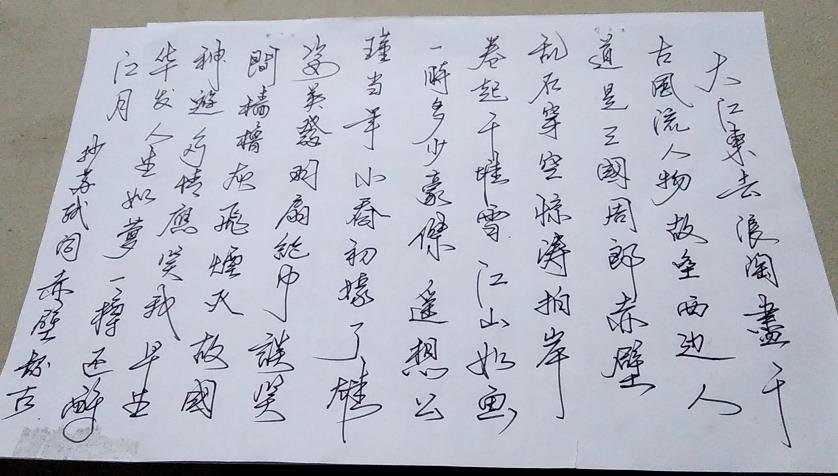 大江東去浪淘盡千
古風流人物故垒西边人
道是三國周郎赤壁
乱石穿空惊涛拍岸
卷起千堆雪江山如画
一時多少豪傑遥想公
瑾当年小喬初嫁了雄
姿英發羽扇綸巾談笑
間檣櫓灰飛煙灭故國
神遊多情應笑我早生
华发人生如夢一樽还酹
江月
抄苏轼词赤壁怀古